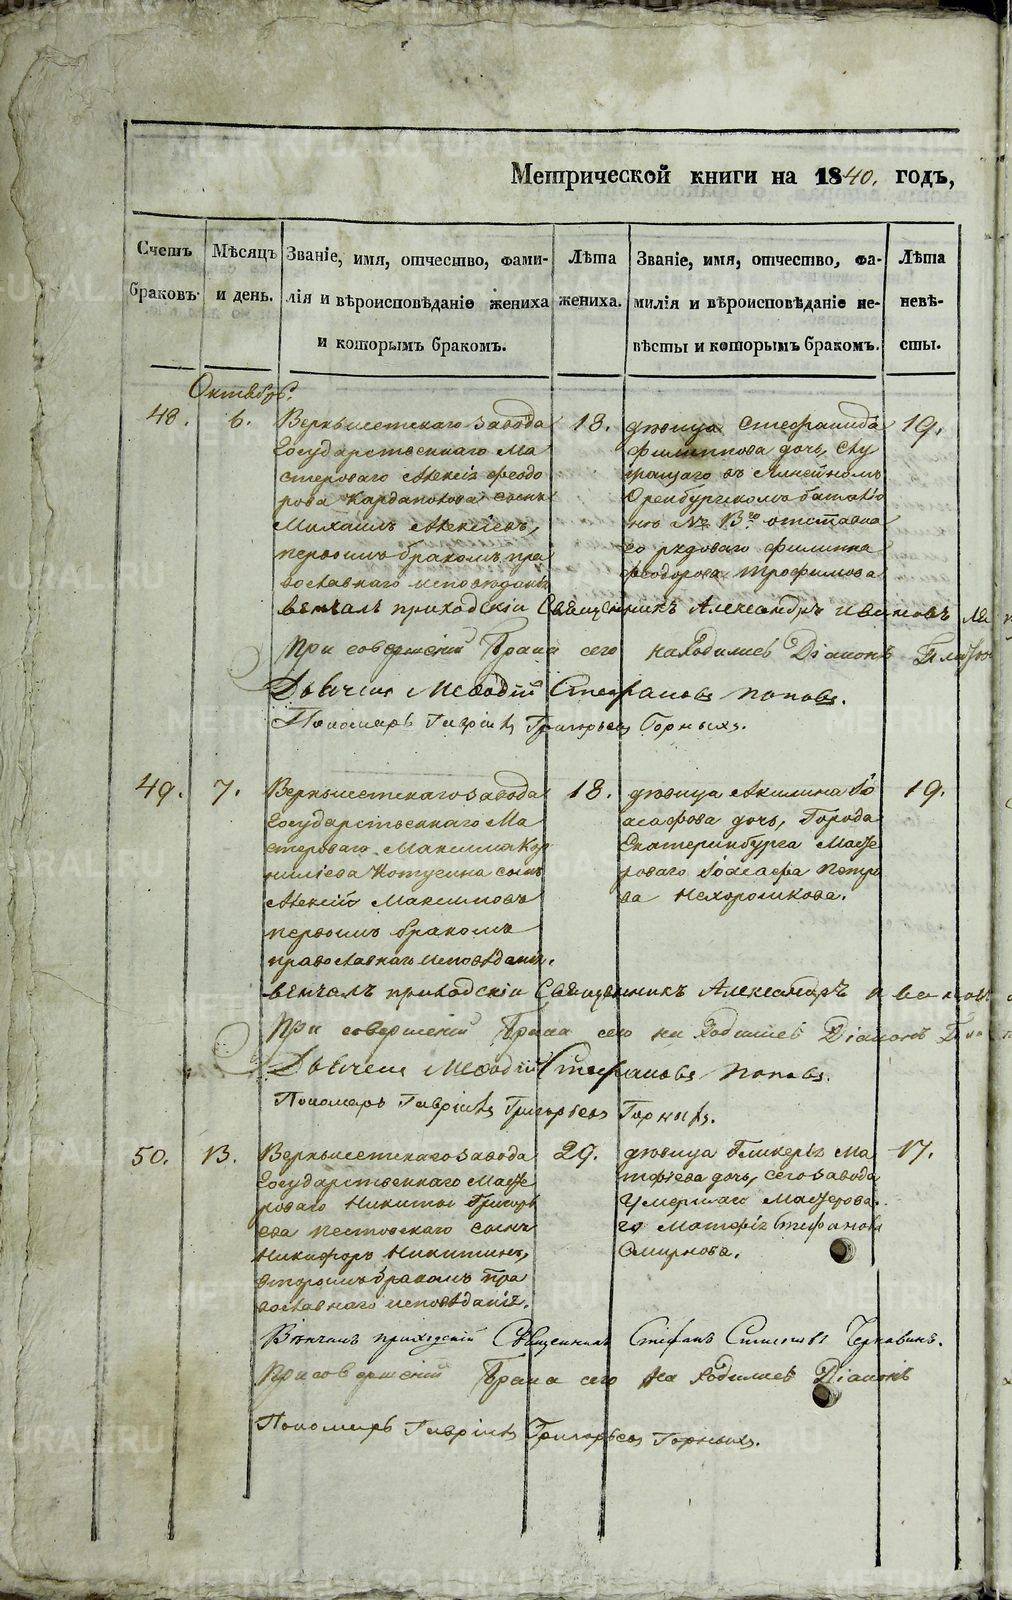 Метрической книги на 1840. годъ,
Счетъ браковъ.
Мѣсяцъ и день.
Званіе, имя, отчество, фами-
лія и вѣроисповѣданіе жениха
и которымъ бракомъ.
Лѣта жениха.
Званіе, имя, отчество, фа-
милія и вѣроисповѣданіе не-
вѣсты и которымъ бракомъ.
Лѣта невѣ-
сты.
Октябрь.
48.
6.
Верхъисетскаго завода
Государственнаго Ма
стероваго Алексія Феодо
рова Кардаполова сынъ
Михаилъ Алексіевъ,
первымъ бракомъ пра
вославнаго исповѣданія
18.
дѣвица Стефанида
Филиппова дочь, слу
жащаго въ Линейномъ
Оренбургскомъ баталіо
нѣ № 13го отставна
го рядоваго Филиппа
Феодорова Трофимова
19.
вѣнчалъ приходскіи Священникъ Александръ Ивановъ
При совершеніи Брака сего находились Діаконъ
Дьячекъ Меѳодій Стефановъ Поповъ.
Пономарь Гавріилъ Григорьевъ Горныхъ.
49.
7.
Верхъисетскаго завода
Государственнаго Ма
стероваго Максима Кор
ниліева Котугина сынъ
Алексій Максимовъ
первымъ бракомъ
православнаго исповѣданія.
18.
дѣвица Акилина Іо
асафова дочь, Города
Екатеринбурга Масте
роваго Іоасафа Петро
ва Нехорошкова.
19.
вѣнчалъ приходскіи Священникъ Александръ Ивановъ
При совершеніи Брака сего находились Діаконъ
Дьячекъ Меѳодій Стефановъ Поповъ.
Пономарь Гавріилъ Григорьевъ Горныхъ.
50.
13.
Верхъисетскаго завода
Государственнаго Масте
роваго Никиты Григорь
ева Пестовскаго сынъ
Никифоръ Никитинъ,
вторымъ бракомъ пра
вославнаго исповѣданія.
29.
дѣвица Гликерія Ма
тфіева дочь, сего завода
умершаго Мастерова
го Матфія Стефанова
Смирнова.
17.
Вѣнчалъ приходскій Священникъ Стефанъ Чернавинъ.
При совершеніи Брака сего находились Діаконъ
Пономарь Гавріилъ Григорьевъ Горныхъ.